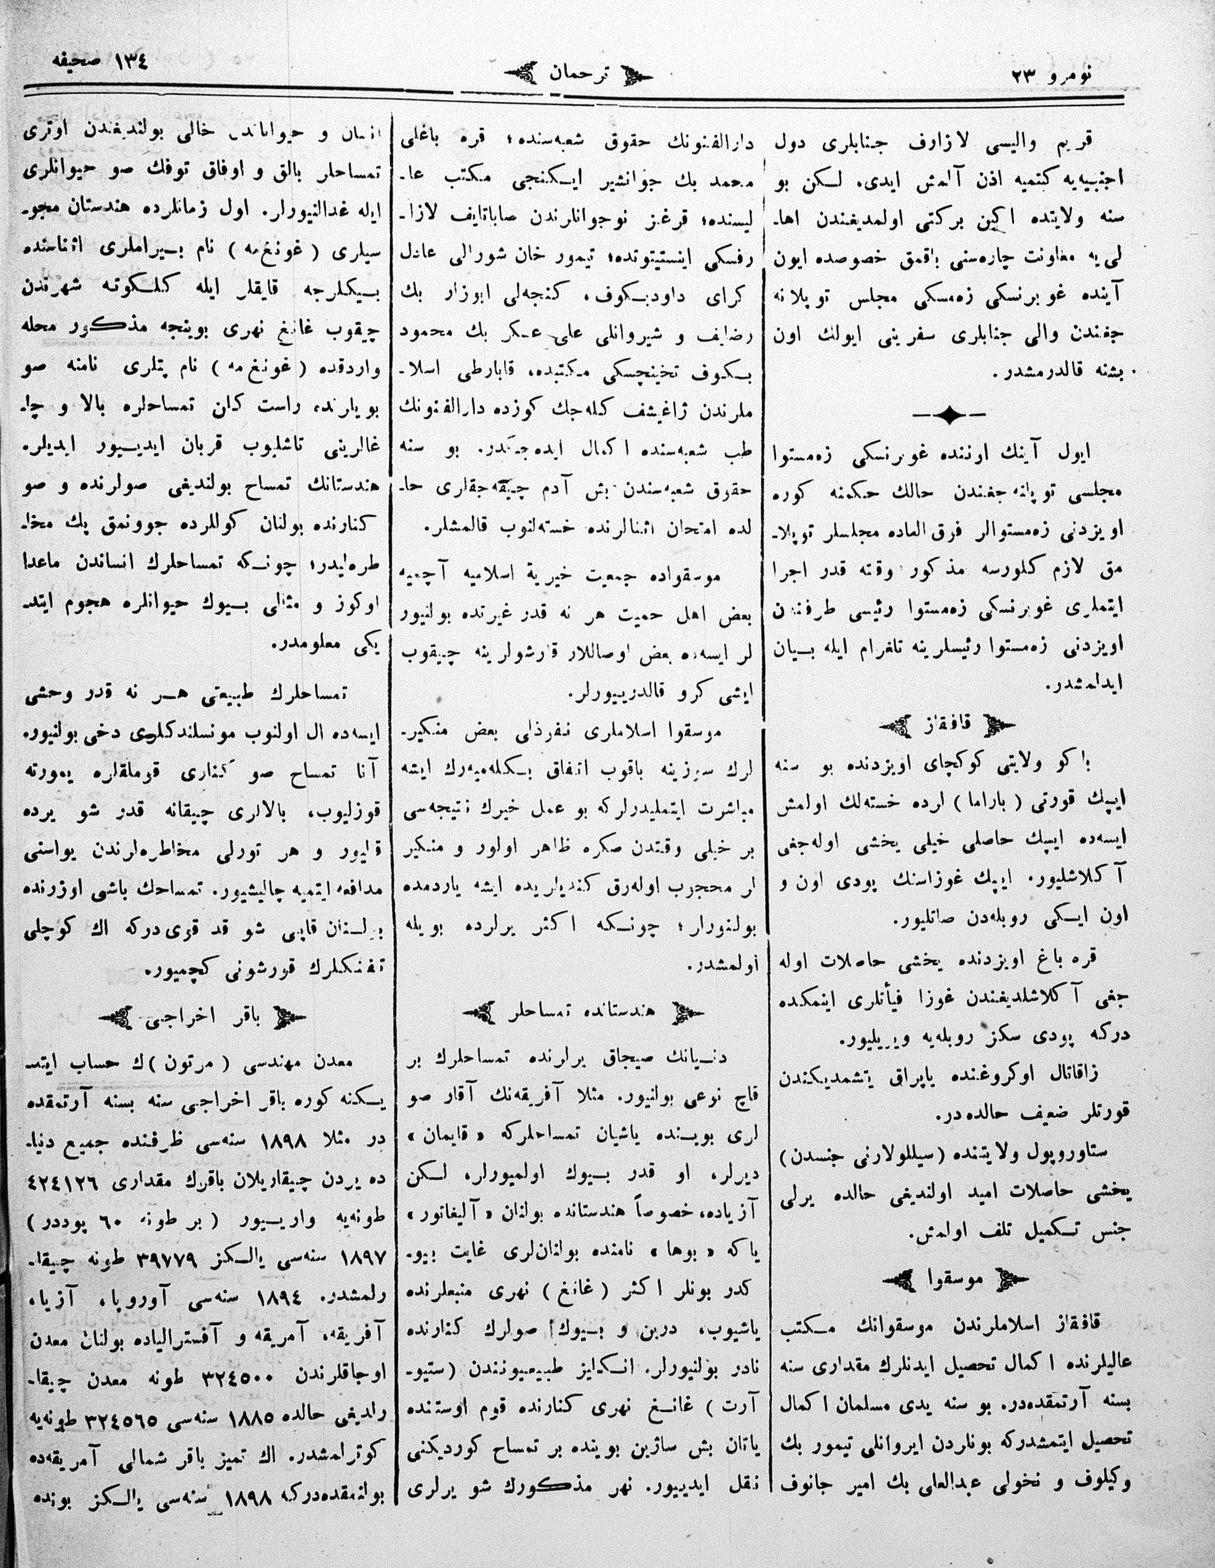 نومرو ٢٣
ترجمان
١٣٤ صحيفه
قريم واليسى لازارف جنابلرى دول
اجنبيه‌يه كتميه اذن آلمش ايدى. لكن بو
سنه ولايتده اكين بركتى اولمديغندن اها-
لى‌يه معاونت چاره‌سنى باقمق خصوصده ايون
آينده غوبرنسكى زه‌مسكى مجلس توپلانه
جغندن والى جنابلرى سفرينى ايولك اون
بشنه قالدرمشدر.
ايول آينك اوننده غوبرنسكى زه‌مستوا
مجلسى توپلانه‌جغندن حالك حكمنه كوره
اويزدنى زه‌مستوالر فوق العاده مجلسلر توپلا-
مق لازم كلورسه مذكور وقته قدر اجرا
ايتملرى غوبرنسكى زه‌مستوا رئيسى طرفندن
اويزدنى زه‌مستوا رئيسلرينه تلغرام ايله بيان
ايدلمشدر.
قافقاز
باكو ولايتى كوكچاى اويزدنده بو سنه
ايپك قورتى (باراما) لرده خسته‌لك اولمش
ايسه‌ده ايپك حاصلى خيلى يخشى اوله‌جغى
آكلاشليور. ايپك غوزاسنك پودى اون و
اون ايكى روبله‌دن صاتليور.
قره باغ اويزدنده يخشى حاصلات اوله
جغى آكلاشلديغندن غوزا فيأتلرى اينمكده
دركه پودى سكز روبله‌يه ويريليور.
زاقاتال اوكروغنده ياپراق يتشمديكندن
قورتلر ضعيف حالده‌در.
ستاوروپول ولايتنده (سيللولارنى جنسدن)
يخشى حاصلات اميد اولنديغى حالده يرلى
جنس تكميل تلف اولمش.
موسقوا
قافقاز اسلاملرندن موسقوانك مكتب
عاليلرنده اكمال تحصيل ايدنلرك مقدارى سنه
بسنه آرتمقده‌در. بو سنه يدى مسلمان اكمال
تحصيل ايتمشدركه بونلردن ايروانلى تيمور بك
وكيلوف و نخولى عبدالعلى بك امير جانوف
دارالفنونك حقوق شعبه‌سنده؛ قره باغلى
محمد بك جوانشير ايكنجى مكتب عا-
ليسنده؛ قرغز نوجوانلرندن صاباتايف لازا-
رفسكى اينستيتوتده؛ تيمور خان شورالى عادل
كراى داودبكوف، كنجه‌لى ابوزار بك
رضايف و شيروانلى على عسكر بك محمود
بكوف تخينچسكى مكتبده، قابارطى اسلا-
ملرندن ژاغيشف كله‌جك كوزده دارالفنونك
طب شعبه‌سنده اكمال ايده‌جكدر. بو سنه
حقوق شعبه‌سندن بش آدم چيقه‌جقلرى حا-
لده امتحان اثنالرنده خسته‌لنوب قالمشلر.
موسقواده جمعيت خيرية اسلاميه آچميه
بعض اهل حميت هر نه قدر غيرتده بولنيور
لر ايسه‌ده بعض اوصاللار قارشولرينه چيقوب
ايشى كرو قالدرييورلر.
موسقوا اسلاملرى نفرذلى بعض منكير-
لرك سوزينه باقوب اتفاق بكله‌ميه‌رك ايشه
مباشرت ايتمليدرلركه بو عمل خيرك نتيجه‌سى
بر خيلى وقتدن صكره ظاهر اولور و منكير
لر محجوب اوله‌رق كنديلريده ايشه ياردمده
بولنورلر؛ چونكه اكثر يرلرده بويله
اولمشدر.
هندستانده تمساحلر
دنيانك صيجاق يرلرنده تمساحلرك بر
قاچ نوعى بولنيور. مثلا آفريقه‌نك آقار صو
لرى بوينده ياشيان تمساحلركه «قايمان»
ديرلر، او قدر بيوك اولميورلر، لكن
آزياده، خصوصاً هندستانده بولنان «آليغاتور»
ياكه «بوها» نامنده بولنانلرى غايت بيو-
كدر بونلر اكثر (غانغ) نهرى منبعلرنده
ياشيوب، درين و بيوك صولرك كنارنده
نادر بولنيورلر. انكليز طبيعيونندن (ستيو-
آرت) غانغ نهرى كنارنده قوم اوستنده
ياتان بش ساژين بوينده بر تمساح كورديكنى
نقل ايدييور. نهر مذكورك شو يرلرى
انسان و حيواناتدن خالى بولنديغندن اوترى
تمساحلر بالق و اوفاق توفك صو حيوانلرى
ايله غدالنيورلر. اول زمانلرده هندستان مجو-
سيلرى (غونغ‌مه) نام بيراملرى اثناسنده
بيكلرجه قايقلر ايله كلكوته شهرندن
چيقوب غانغ نهرى بوينجه مذكور محله
واردقده (غونغ‌مه) نام پتلرى نامنه صو
بويلرنده راست كلن تمساحلره بالا و چا-
غالرينى تاشليوب قربان ايديور ايديلر.
هندستانك تمساح بولنديغى صولرنده و صو
كنارنده بولنان كوللرده جوونمق پك مخا-
طره‌ليدر؛ چونكه تمساحلرك انساندن ماعدا
اوكوز و مثالى بيوك حيوانلره هجوم ايتد-
يكى معلومدر.
تمساحلرك طبيعتى هر نه قدر وحشى
ايسه‌ده ال اولنوب مونسلندكلرى دخى بولنيور.
آنا تمساح صو كنارى قوملقلره يمورته
قوزليوب، بالالرى چيقانه قدر شو يرده
قليور و هر تورلى مخاطره‌لرندن يواسنى
مدافعه ايتميه چاليشيور. تمساحك باشى اوزرنده
بولنان قاپى شو قدر قوى‌دركه اك كوچلى
تفنكلرك قورشونى كچميور.
باقر اخراجى
معدن مهندسى (مرتون)ك حساب ايتد-
يكنه كوره باقر اخراجى سنه بسنه آرتمقده
در مثلا ١٨٩٨ سنه‌سى ظرفنده جميع دنيا-
ده يردن چيقاريلان باقرك مقدارى ٤٢٤١٢٦
طونه‌يه واريور (بر طونه ٦٠ پوددر)
١٨٩٧ سنه‌سى يالكز ٣٩٧٧٩ طونه چيقا-
رلمشدر. ١٨٩٤ سنه‌سى آوروپا، آزيا،
آفريقه، آمريقه و آفسترالياده بولنان معدن
اوجاقلرندن ٣٢٤٥٠٠ طونه معدن چيقا-
رلديغى حالده ١٨٨٥ سنه‌سى ٣٢٤٥٦٥ طونه‌يه
كوترلمشدر. اك تميز باقر شمالى آمريقه‌ده
بولنمقده‌دركه ١٨٩٨ سنه‌سى يالكز بونده